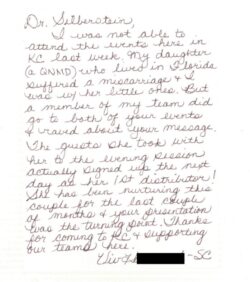 Dr. Silberstein,
I was not able to
attend the events here in
KC last week. My daughter
(a QNMD) who lived in Florida
suffered a miscarriage & I
was w/ her little ones. But
a member of my team did
go to both of your events
& raved about your message.
The guests she took with
her to the evening session
actually signed up the next
day as her 1st distributor!
She has been nurturing this
couple for the last couple
of months & your presentation
was the turning point. Thanks
for coming to KC & supporting
our teams here.
-SC